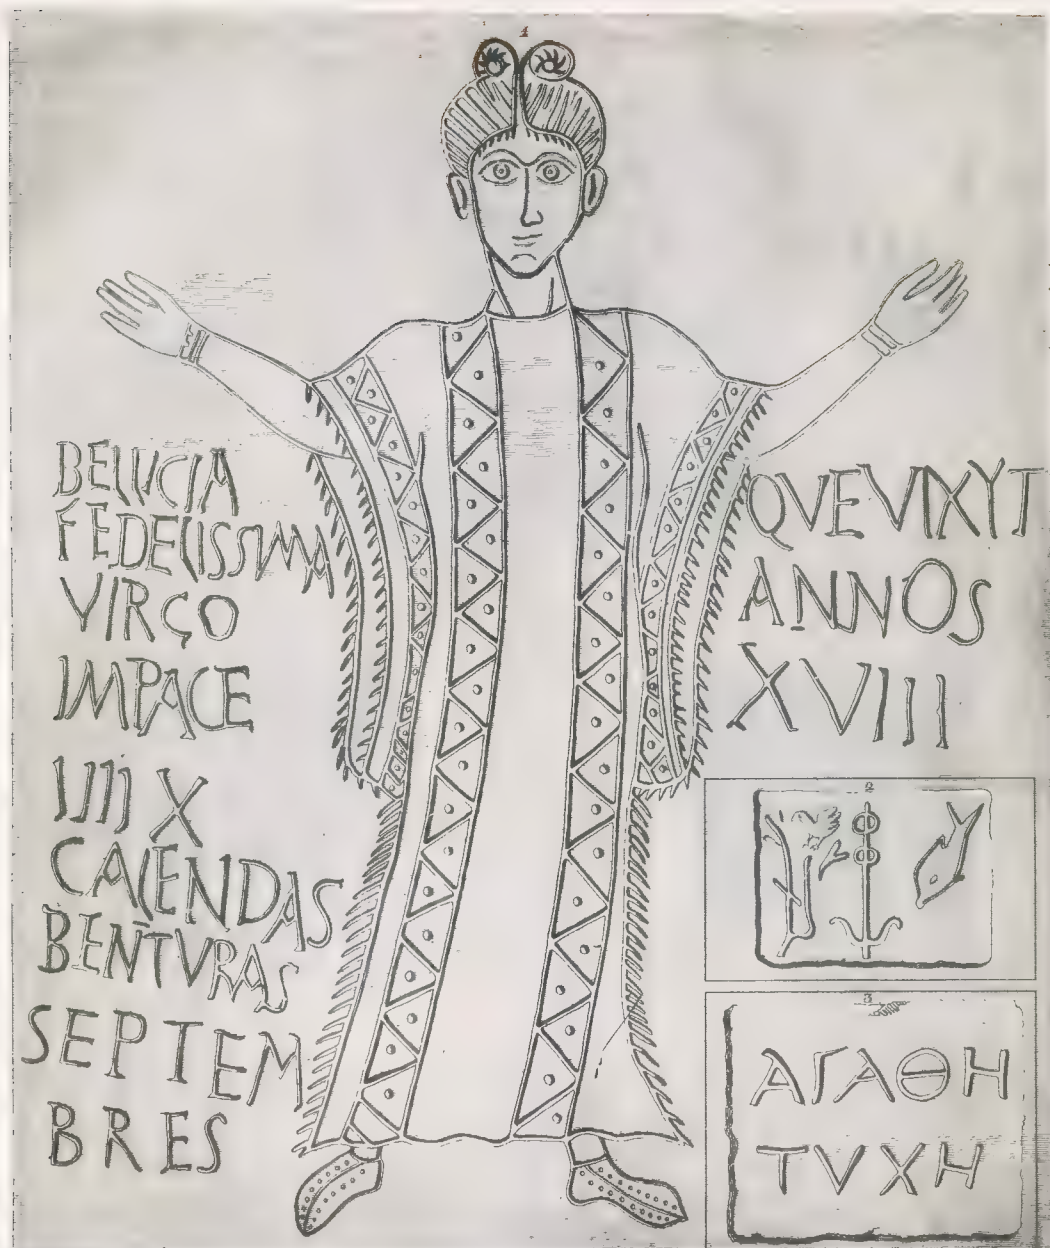 1
BELLICIA
FEDELISSIMA
VIRGO
IMPACE
IIII X
CALENDAS
BENTVRAS
SEPTEM
BRES
QVE VIXYT
ANNOS
XVIII
2
3
ΑΓΑΘΗ
ΤΥΧΗ